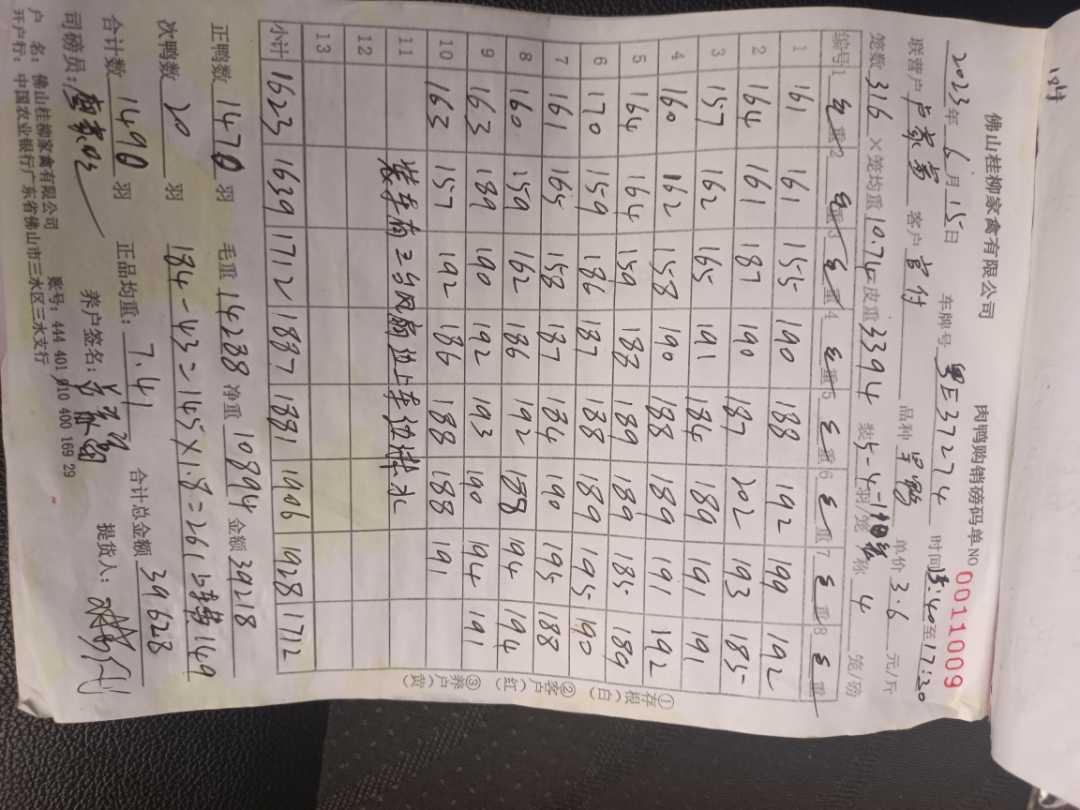 佛山桂柳家禽有限公司
肉鸭购销磅码单 NO 0011009
2023年6月15日 车牌号 粤E37274 时间15:40至17:30
联营户 卢家 客户 官付 品种 单价 3.6 元/斤
笼数 316 ×笼均重 10.74 皮重 3394 装5-4= 羽/笼 称 4 笼/磅
编号 1 毛重 2 毛重 3 毛重 4 毛重 5 毛重 6 毛重 7 毛重 8 毛重
1 161 161 155 190 188 192 199 192
2 164 161 187 190 187 202 193 185
3 157 162 165 191 184 189 191 191
4 160 162 158 190 188 189 191 192
5 164 164 159 188 189 189 185 189
6 170 159 186 187 188 189 195 190
7 161 165 158 187 184 190 195 188
8 160 159 162 186 192 188 194 194
9 163 189 190 192 193 190 194 191
10 163 157 192 186 188 188 191
11 装车有二台风扇边上车边淋水
12
13
小计 1623 1639 1712 1887 1881 1906 1928 1712
正鸭数 1470 羽 毛重 14288 净重 10894 金额 39218
次鸭数 20 羽 184-43=145×1.8=261 149
合计数 1490 羽 正品均重: 7.41 合计总金额 39628
司磅员: 养户签名: 提货人:
户 名: 佛山桂柳家禽有限公司 账号: 444 401 010 400 169 29
开户行: 中国农业银行广东省佛山市三水区三水支行
①存根(白) ②客户(红) ③养户(黄)